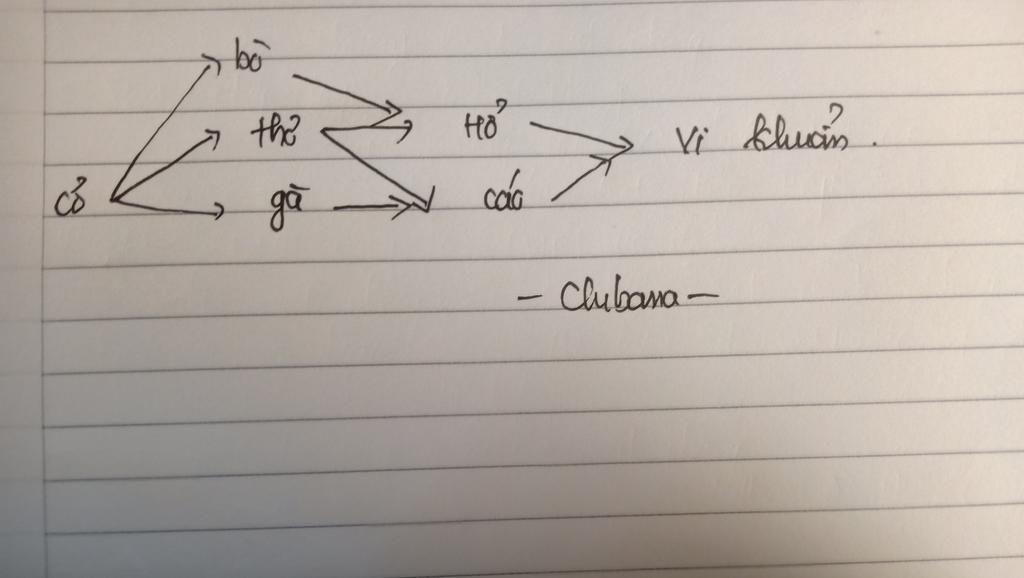 bò
thỏ Hổ Vi khuẩn.
cỏ gà cáo
- Clubana -